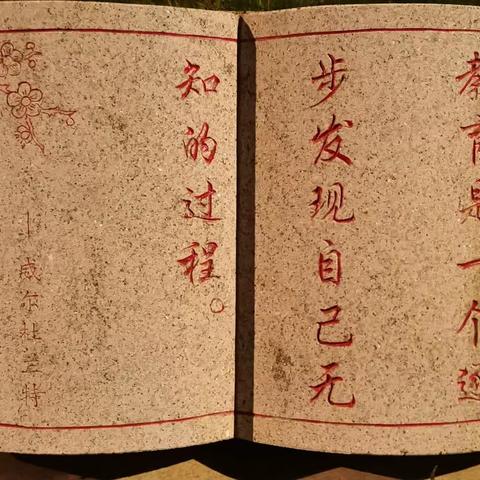 教育是一个逐
步发现自己无
知的过程。
—威尔杜兰特